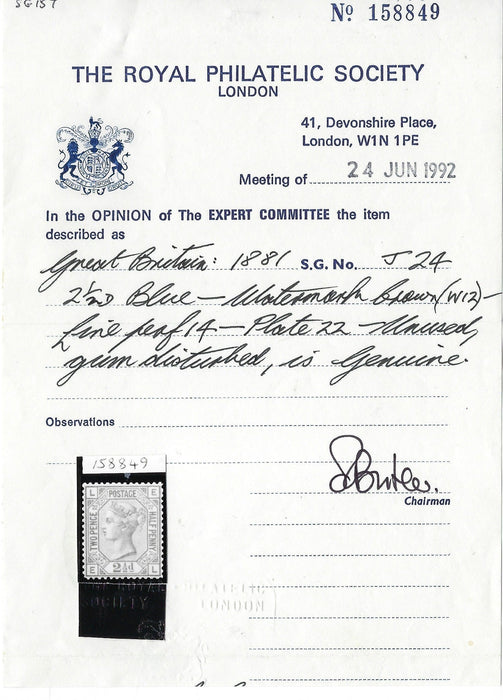 SG157
No 158849
THE ROYAL PHILATELIC SOCIETY
LONDON
41, Devonshire Place,
London, W1N 1PE
Meeting of 24 JUN 1992
In the OPINION of The EXPERT COMMITTEE the item
described as
Great Britain: 1881 S.G. No. J 24
2½D Blue – Watermark Crown (W12) –
Line perf 14 – Plate 22 – Unused,
gum disturbed, is Genuine.
Observations
Chairman
158849
L POSTAGE E
TWO PENCE HALF PENNY
E 2½d L
ROYAL PHILATELIC
SOCIETY LONDON